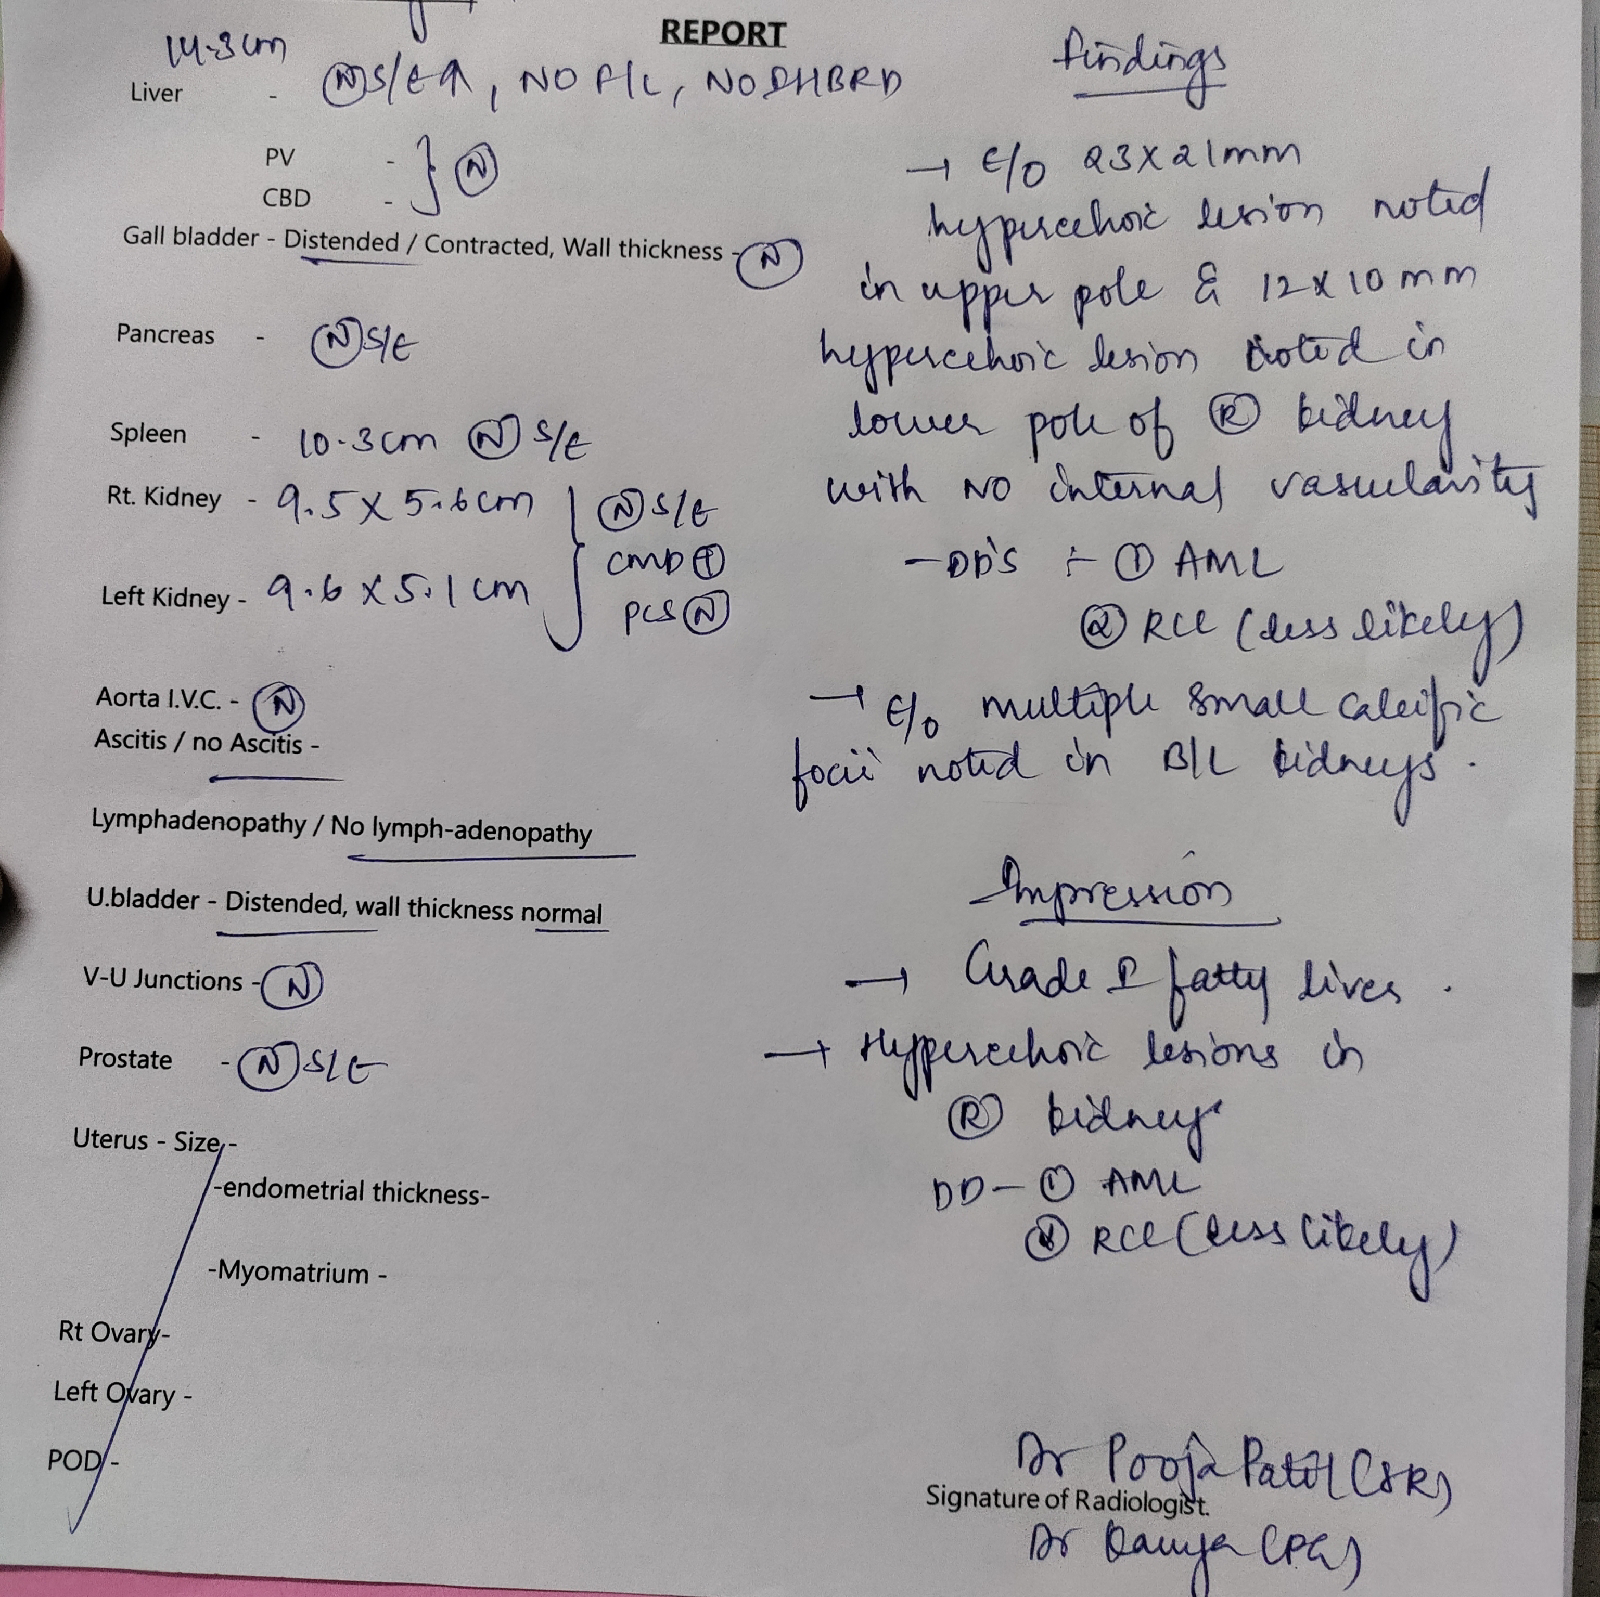 REPORT
14.3cm
Liver - Ⓝ S/E↑, NO F/L, NO DHBRD
PV -
CBD - } Ⓝ
Gall bladder - Distended / Contracted, Wall thickness - Ⓝ
Pancreas - Ⓝ S/E
Spleen - 10.3cm Ⓝ S/E
Rt. Kidney - 9.5 X 5.6cm
Left Kidney - 9.6 X 5.1 cm
} Ⓝ S/E
CMD ⊕
PCS Ⓝ
Aorta I.V.C. - Ⓝ
Ascitis / no Ascitis -
Lymphadenopathy / No lymph-adenopathy
U.bladder - Distended, wall thickness normal
V-U Junctions - Ⓝ
Prostate - Ⓝ S/E
Uterus - Size, -
-endometrial thickness-
-Myomatrium -
Rt Ovary-
Left Ovary -
POD -
Findings
→ E/o 23X21mm
hyperechoic lesion noted
in upper pole & 12X10mm
hyperechoic lesion noted in
lower pole of Ⓡ kidney
with NO internal vascularity
- DD's :- ① AML
② RCC (less likely)
→ E/o multiple small calcific
focii noted in B/L kidneys.
Impression
→ Grade I fatty liver.
→ Hyperechoic lesions in
Ⓡ kidney
DD - ① AML
② RCC (less likely)
Dr Pooja Patil (SR)
Signature of Radiologist.
Dr (PG)